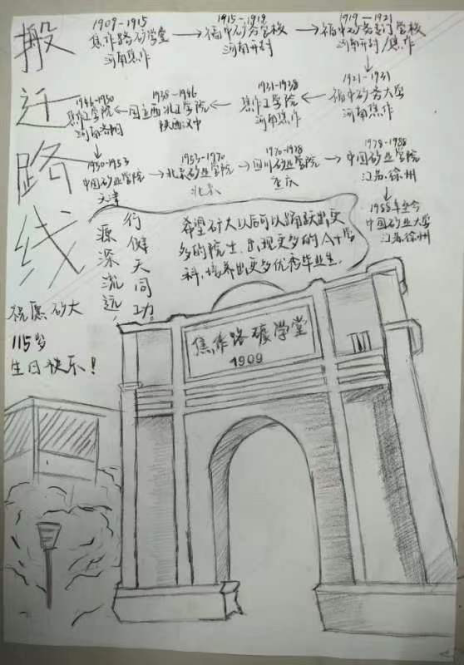 搬迁路线
1909-1915
焦作路矿学堂
河南焦作
1915-1919
福中矿务学校
河南开封
1919-1921
福中矿务专门学校
河南开封/焦作
1921-1931
福中矿务大学
河南焦作
1931-1938
焦作工学院
河南焦作
1938-1946
国立西北工学院
陕西汉中
1946-1950
焦作工学院
河南洛阳
1950-1953
中国矿业学院
天津
1953-1970
北京矿业学院
北京
1970-1978
四川矿业学院
重庆
1978-1988
中国矿业学院
江苏徐州
1988至今
中国矿业大学
江苏徐州
行健天同功
源深流远,
希望矿大以后可以涌现出更
多的院士,出现更多的A+学
科,培养出更多优秀毕业生。
祝愿矿大
115岁
生日快乐!
焦作路礦学堂
1909